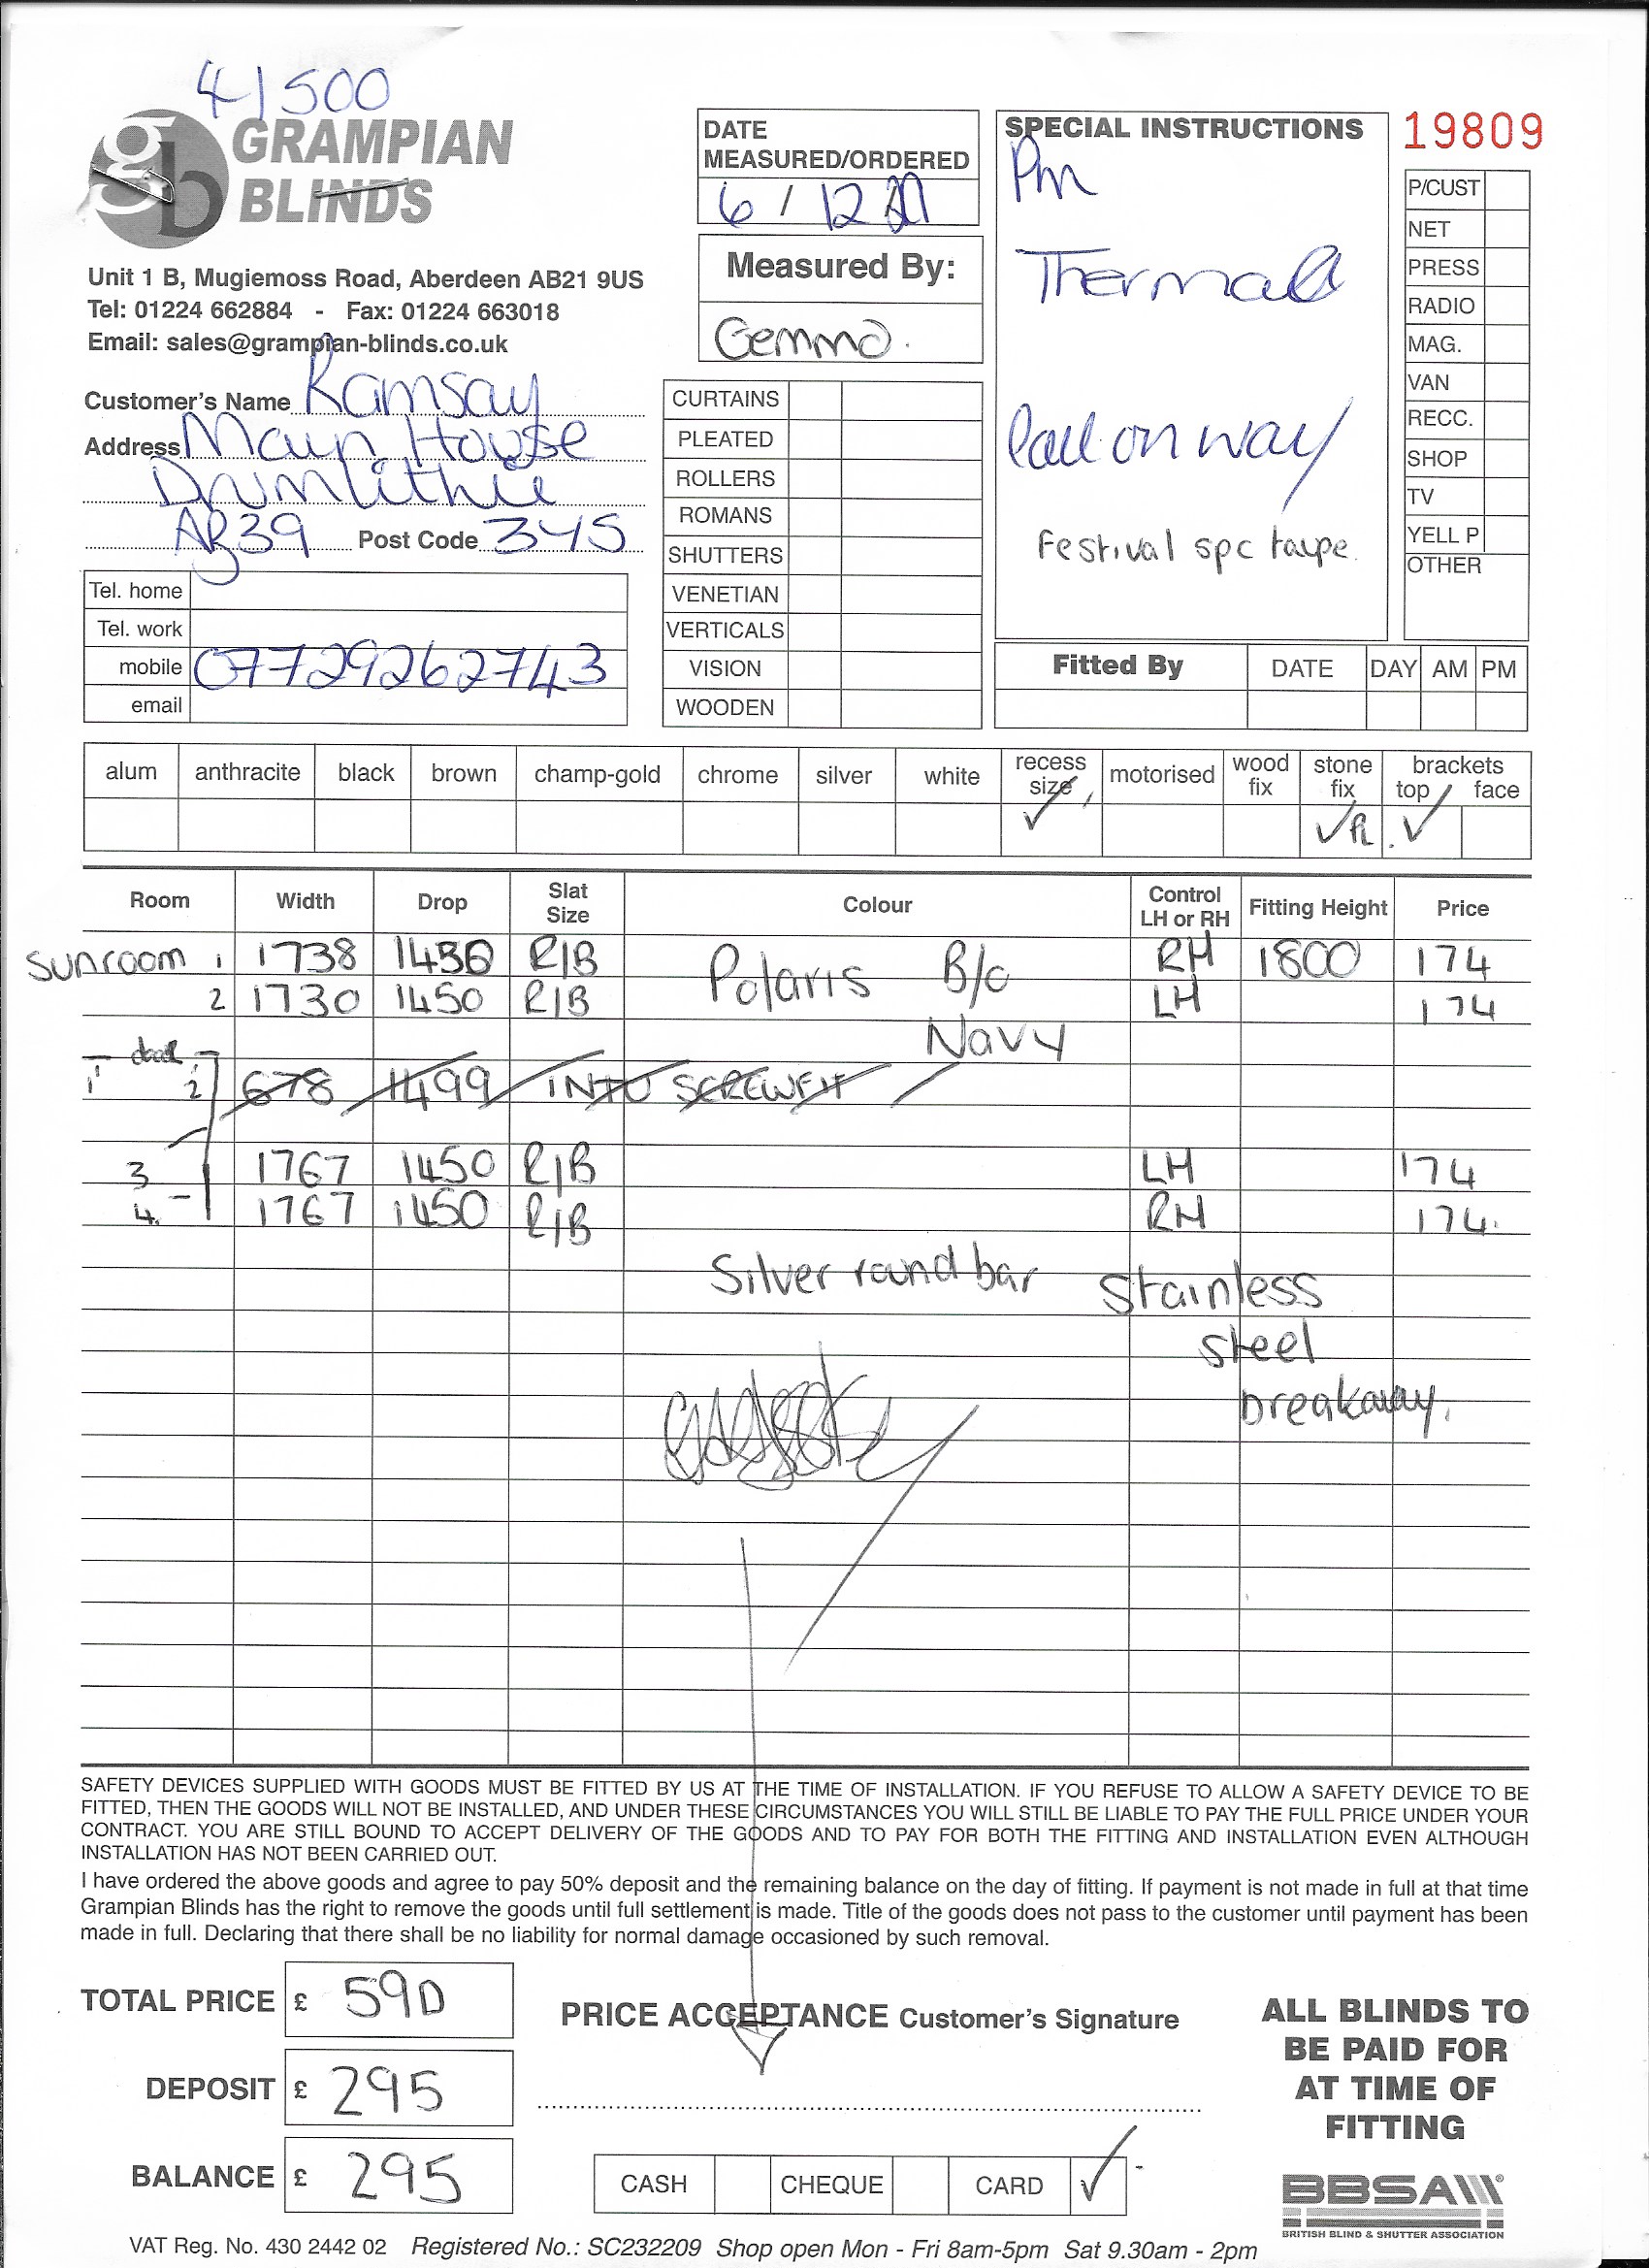 41500
GRAMPIAN
BLINDS
Unit 1 B, Mugiemoss Road, Aberdeen AB21 9US
Tel: 01224 662884 - Fax: 01224 663018
Email: sales@grampian-blinds.co.uk
Customer's Name Ramsay
Address Main House
Drumlithie
AB39 Post Code 3YS
Tel. home
Tel. work
mobile 07729262743
email
DATE
MEASURED/ORDERED
6 / 12
Measured By:
Gemma.
CURTAINS
PLEATED
ROLLERS
ROMANS
SHUTTERS
VENETIAN
VERTICALS
VISION
WOODEN
SPECIAL INSTRUCTIONS
Pm
Thermal
Call on way
Festival spc taupe.
19809
P/CUST
NET
PRESS
RADIO
MAG.
VAN
RECC.
SHOP
TV
YELL P
OTHER
Fitted By DATE DAY AM PM
alum anthracite black brown champ-gold chrome silver white recess size motorised wood fix stone fix brackets top face
✓ ✓ ✓
Room Width Drop Slat Size Colour Control LH or RH Fitting Height Price
Sunroom 1 1738 1450 R/B Polaris B/o RH 1800 174
2 1730 1450 R/B LH 174
Navy
1 2 678 1499 INTO
3 1767 1450 R/B LH 174
4. 1767 1450 R/B RH 174.
Silver round bar Stainless
steel
breakaway.
SAFETY DEVICES SUPPLIED WITH GOODS MUST BE FITTED BY US AT THE TIME OF INSTALLATION. IF YOU REFUSE TO ALLOW A SAFETY DEVICE TO BE
FITTED, THEN THE GOODS WILL NOT BE INSTALLED, AND UNDER THESE CIRCUMSTANCES YOU WILL STILL BE LIABLE TO PAY THE FULL PRICE UNDER YOUR
CONTRACT. YOU ARE STILL BOUND TO ACCEPT DELIVERY OF THE GOODS AND TO PAY FOR BOTH THE FITTING AND INSTALLATION EVEN ALTHOUGH
INSTALLATION HAS NOT BEEN CARRIED OUT.
I have ordered the above goods and agree to pay 50% deposit and the remaining balance on the day of fitting. If payment is not made in full at that time
Grampian Blinds has the right to remove the goods until full settlement is made. Title of the goods does not pass to the customer until payment has been
made in full. Declaring that there shall be no liability for normal damage occasioned by such removal.
TOTAL PRICE £ 590
DEPOSIT £ 295
BALANCE £ 295
PRICE ACCEPTANCE Customer's Signature
CASH CHEQUE CARD ✓
ALL BLINDS TO
BE PAID FOR
AT TIME OF
FITTING
BBSA
BRITISH BLIND & SHUTTER ASSOCIATION
VAT Reg. No. 430 2442 02 Registered No.: SC232209 Shop open Mon - Fri 8am-5pm Sat 9.30am - 2pm